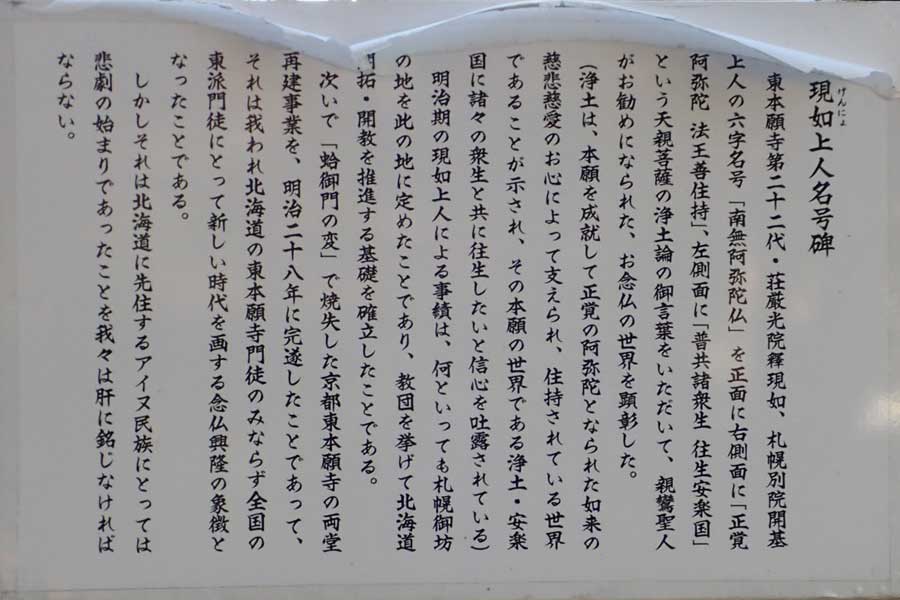 現如上人名号碑
げんにょ
東本願寺第二十二代・荘厳光院釋現如、札幌別院開基
上人の六字名号「南無阿弥陀仏」を正面に右側面に「正覚
阿弥陀 法王善住持」、左側面に「普共諸衆生 往生安楽国」
という天親菩薩の浄土論の御言葉をいただいて、親鸞聖人
がお勧めになられた、お念仏の世界を顕彰した。
(浄土は、本願を成就して正覚の阿弥陀となられた如来の
慈悲慈愛のお心によって支えられ、住持されている世界
であることが示され、その本願の世界である浄土・安楽
国に諸々の衆生と共に往生したいと信心を吐露されている)
明治期の現如上人による事績は、何といっても札幌御坊
の地を此の地に定めたことであり、教団を挙げて北海道
開拓・開教を推進する基礎を確立したことである。
次いで「蛤御門の変」で焼失した京都東本願寺の両堂
再建事業を、明治二十八年に完遂したことであって、
それは我われ北海道の東本願寺門徒のみならず全国の
東派門徒にとって新しい時代を画する念仏興隆の象徴と
なったことである。
しかしそれは北海道に先住するアイヌ民族にとっては
悲劇の始まりであったことを我々は肝に銘じなければ
ならない。